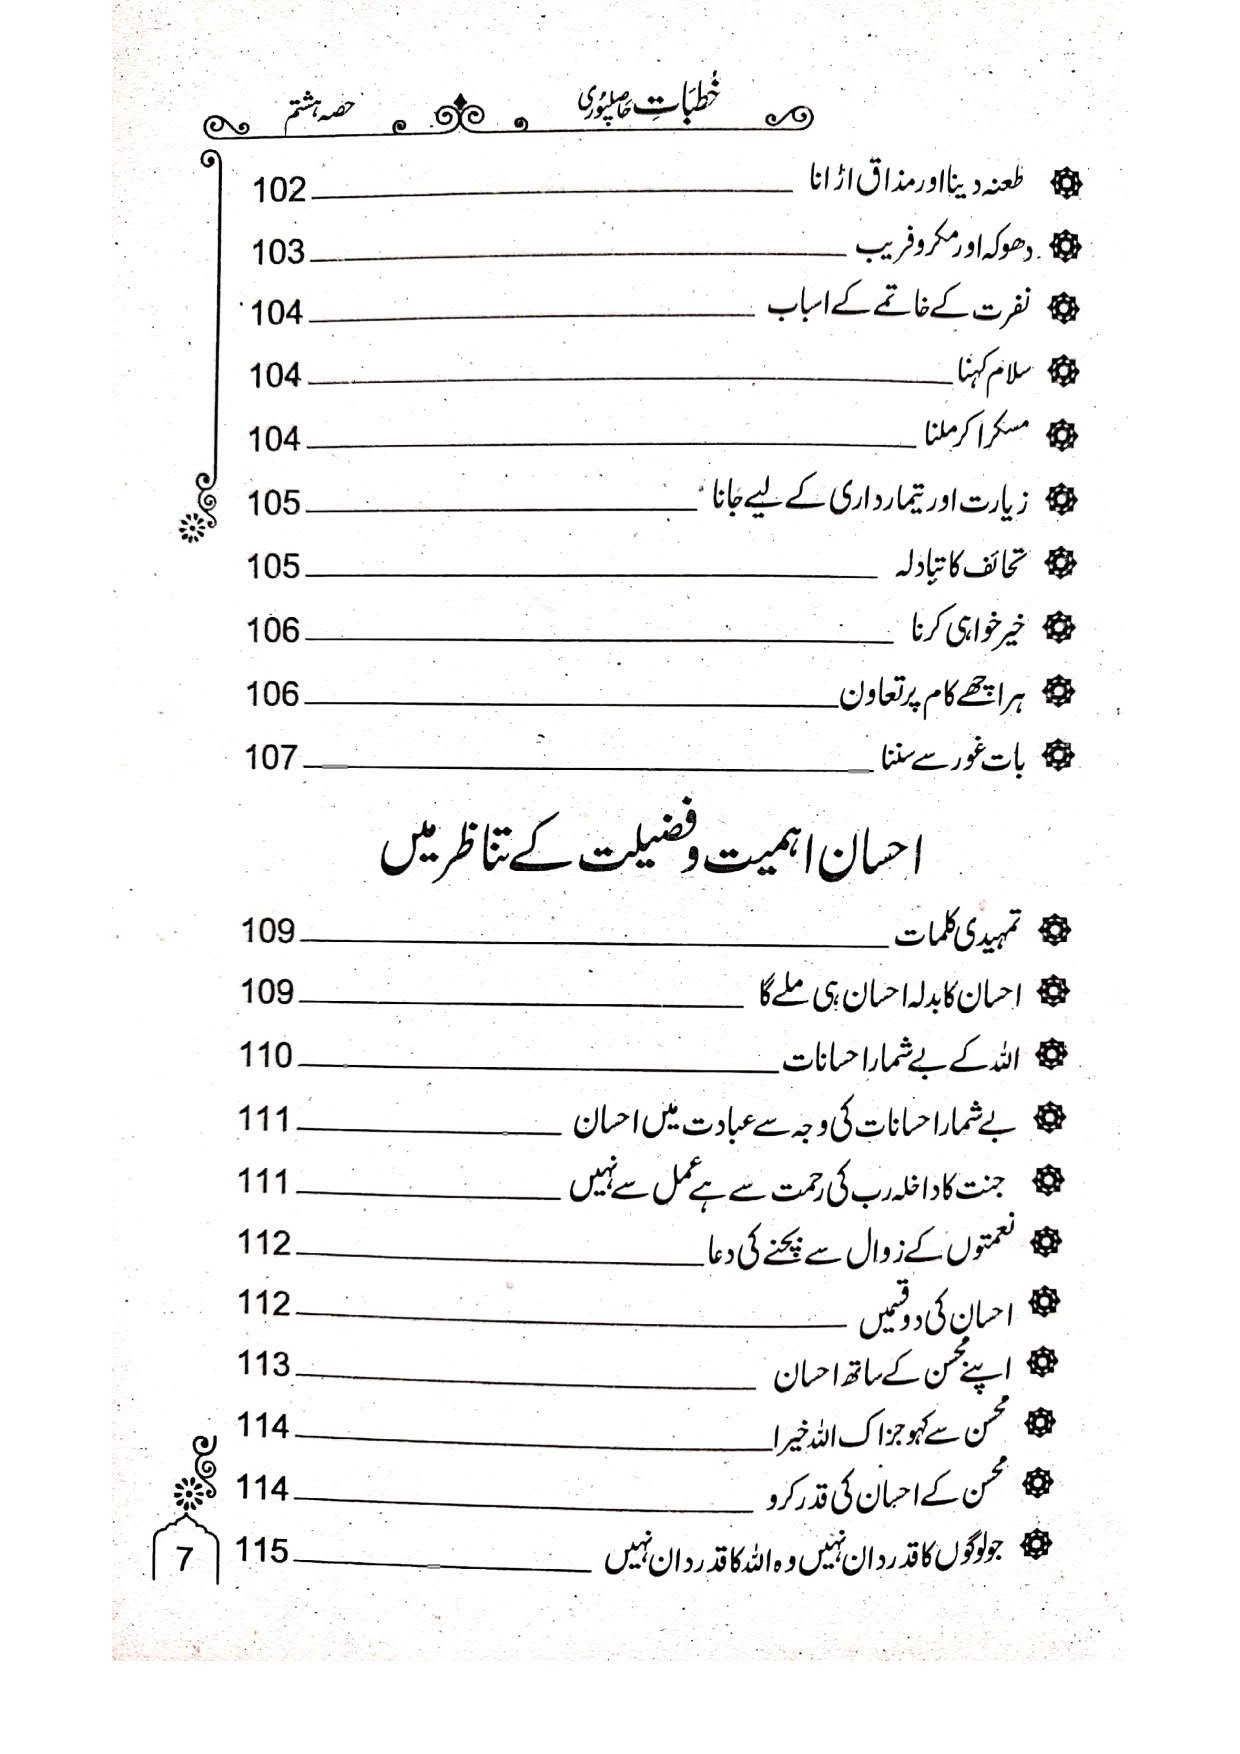 خُطبَاتِ حَاصلپُوری حصہ ہشتم
طعنہ دینا اور مذاق اڑانا 102
دھوکہ اور مکر و فریب 103
نفرت کے خاتمے کے اسباب 104
سلام کہنا 104
مسکرا کر ملنا 104
زیارت اور تیمارداری کے لیے جانا 105
تحائف کا تبادلہ 105
خیر خواہی کرنا 106
ہر اچھے کام پر تعاون 106
بات غور سے سننا 107
احسان اہمیت و فضیلت کے تناظر میں
تمہیدی کلمات 109
احسان کا بدلہ احسان ہی ملے گا 109
اللہ کے بے شمار احسانات 110
بے شمار احسانات کی وجہ سے عبادت میں احسان 111
جنت کا داخلہ رب کی رحمت سے ہے عمل سے نہیں 111
نعمتوں کے زوال سے بچنے کی دعا 112
احسان کی دو قسمیں 112
اپنے محسن کے ساتھ احسان 113
محسن سے کہو جزاک اللہ خیرا 114
محسن کے احسان کی قدر کرو 114
جو لوگوں کا قدر دان نہیں وہ اللہ کا قدر دان نہیں 115
7